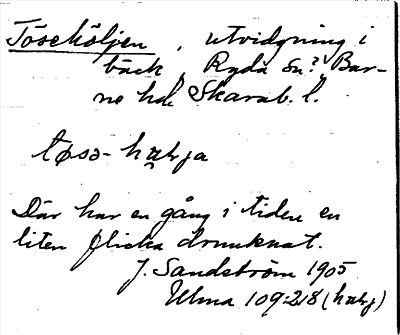 Töseköljen, utvidgning i
bäck, Ryda sn?, Bar-
ne hd Skarab. l.
tøsə-
Där har en gång i tiden en
liten flicka drunknat.
J. Sandström 1905
Ulma 109:218